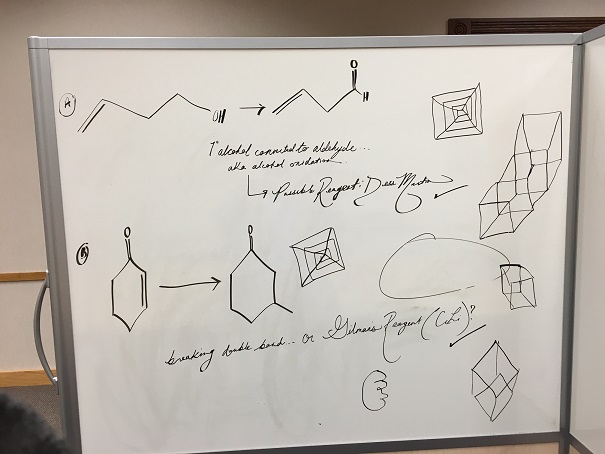 A
OH
O
H
1° alcohol converted to aldehyde...
aka alcohol oxidation...
Possible Reagent: Dess Martin
B
O
O
breaking double bond... or Gilman's Reagent (CuLi)?